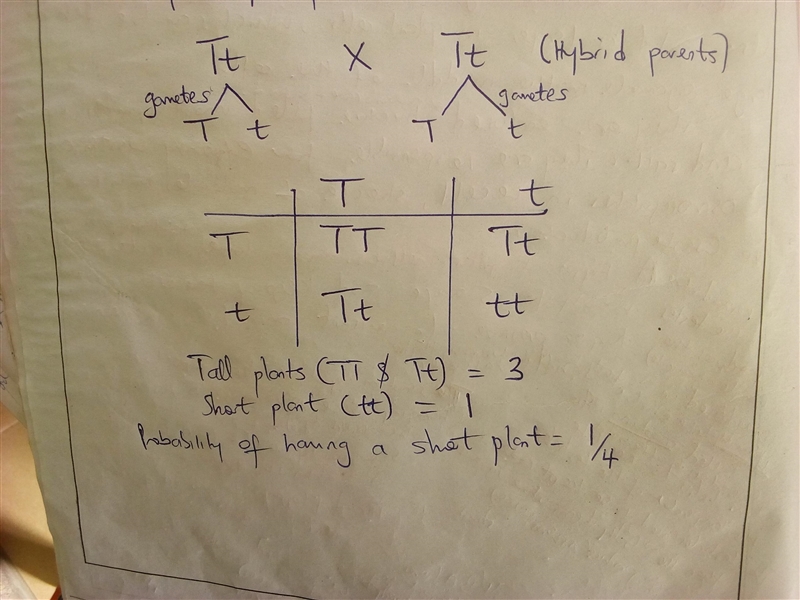 Tt X Tt (Hybrid parents)
gametes gametes
T t T t
T t
T TT Tt
t Tt tt
Tall plants (TT & Tt) = 3
Short plant (tt) = 1
Probability of having a short plant = 1/4